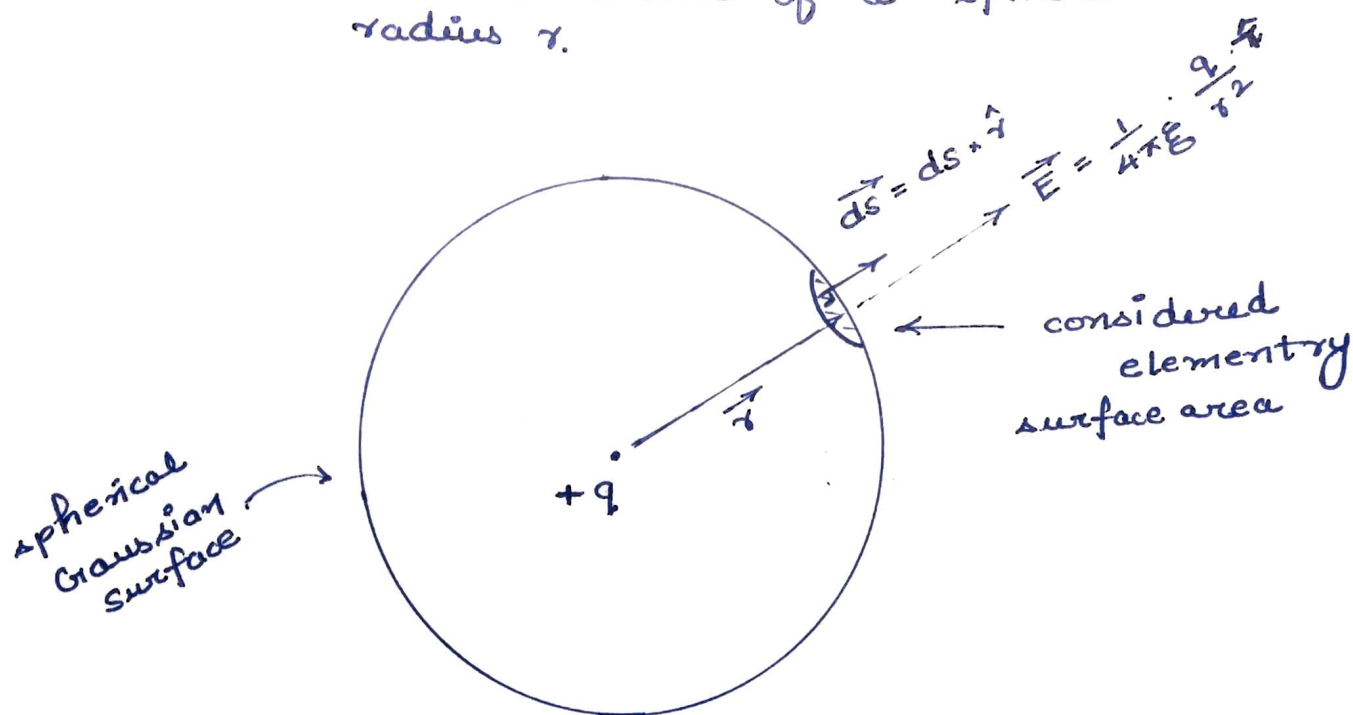 of a
radius r.
ds = ds · r̂
E = 1/4πε · q/r²
considered
elementry
surface area
r
+q
spherical
Gaussian
surface